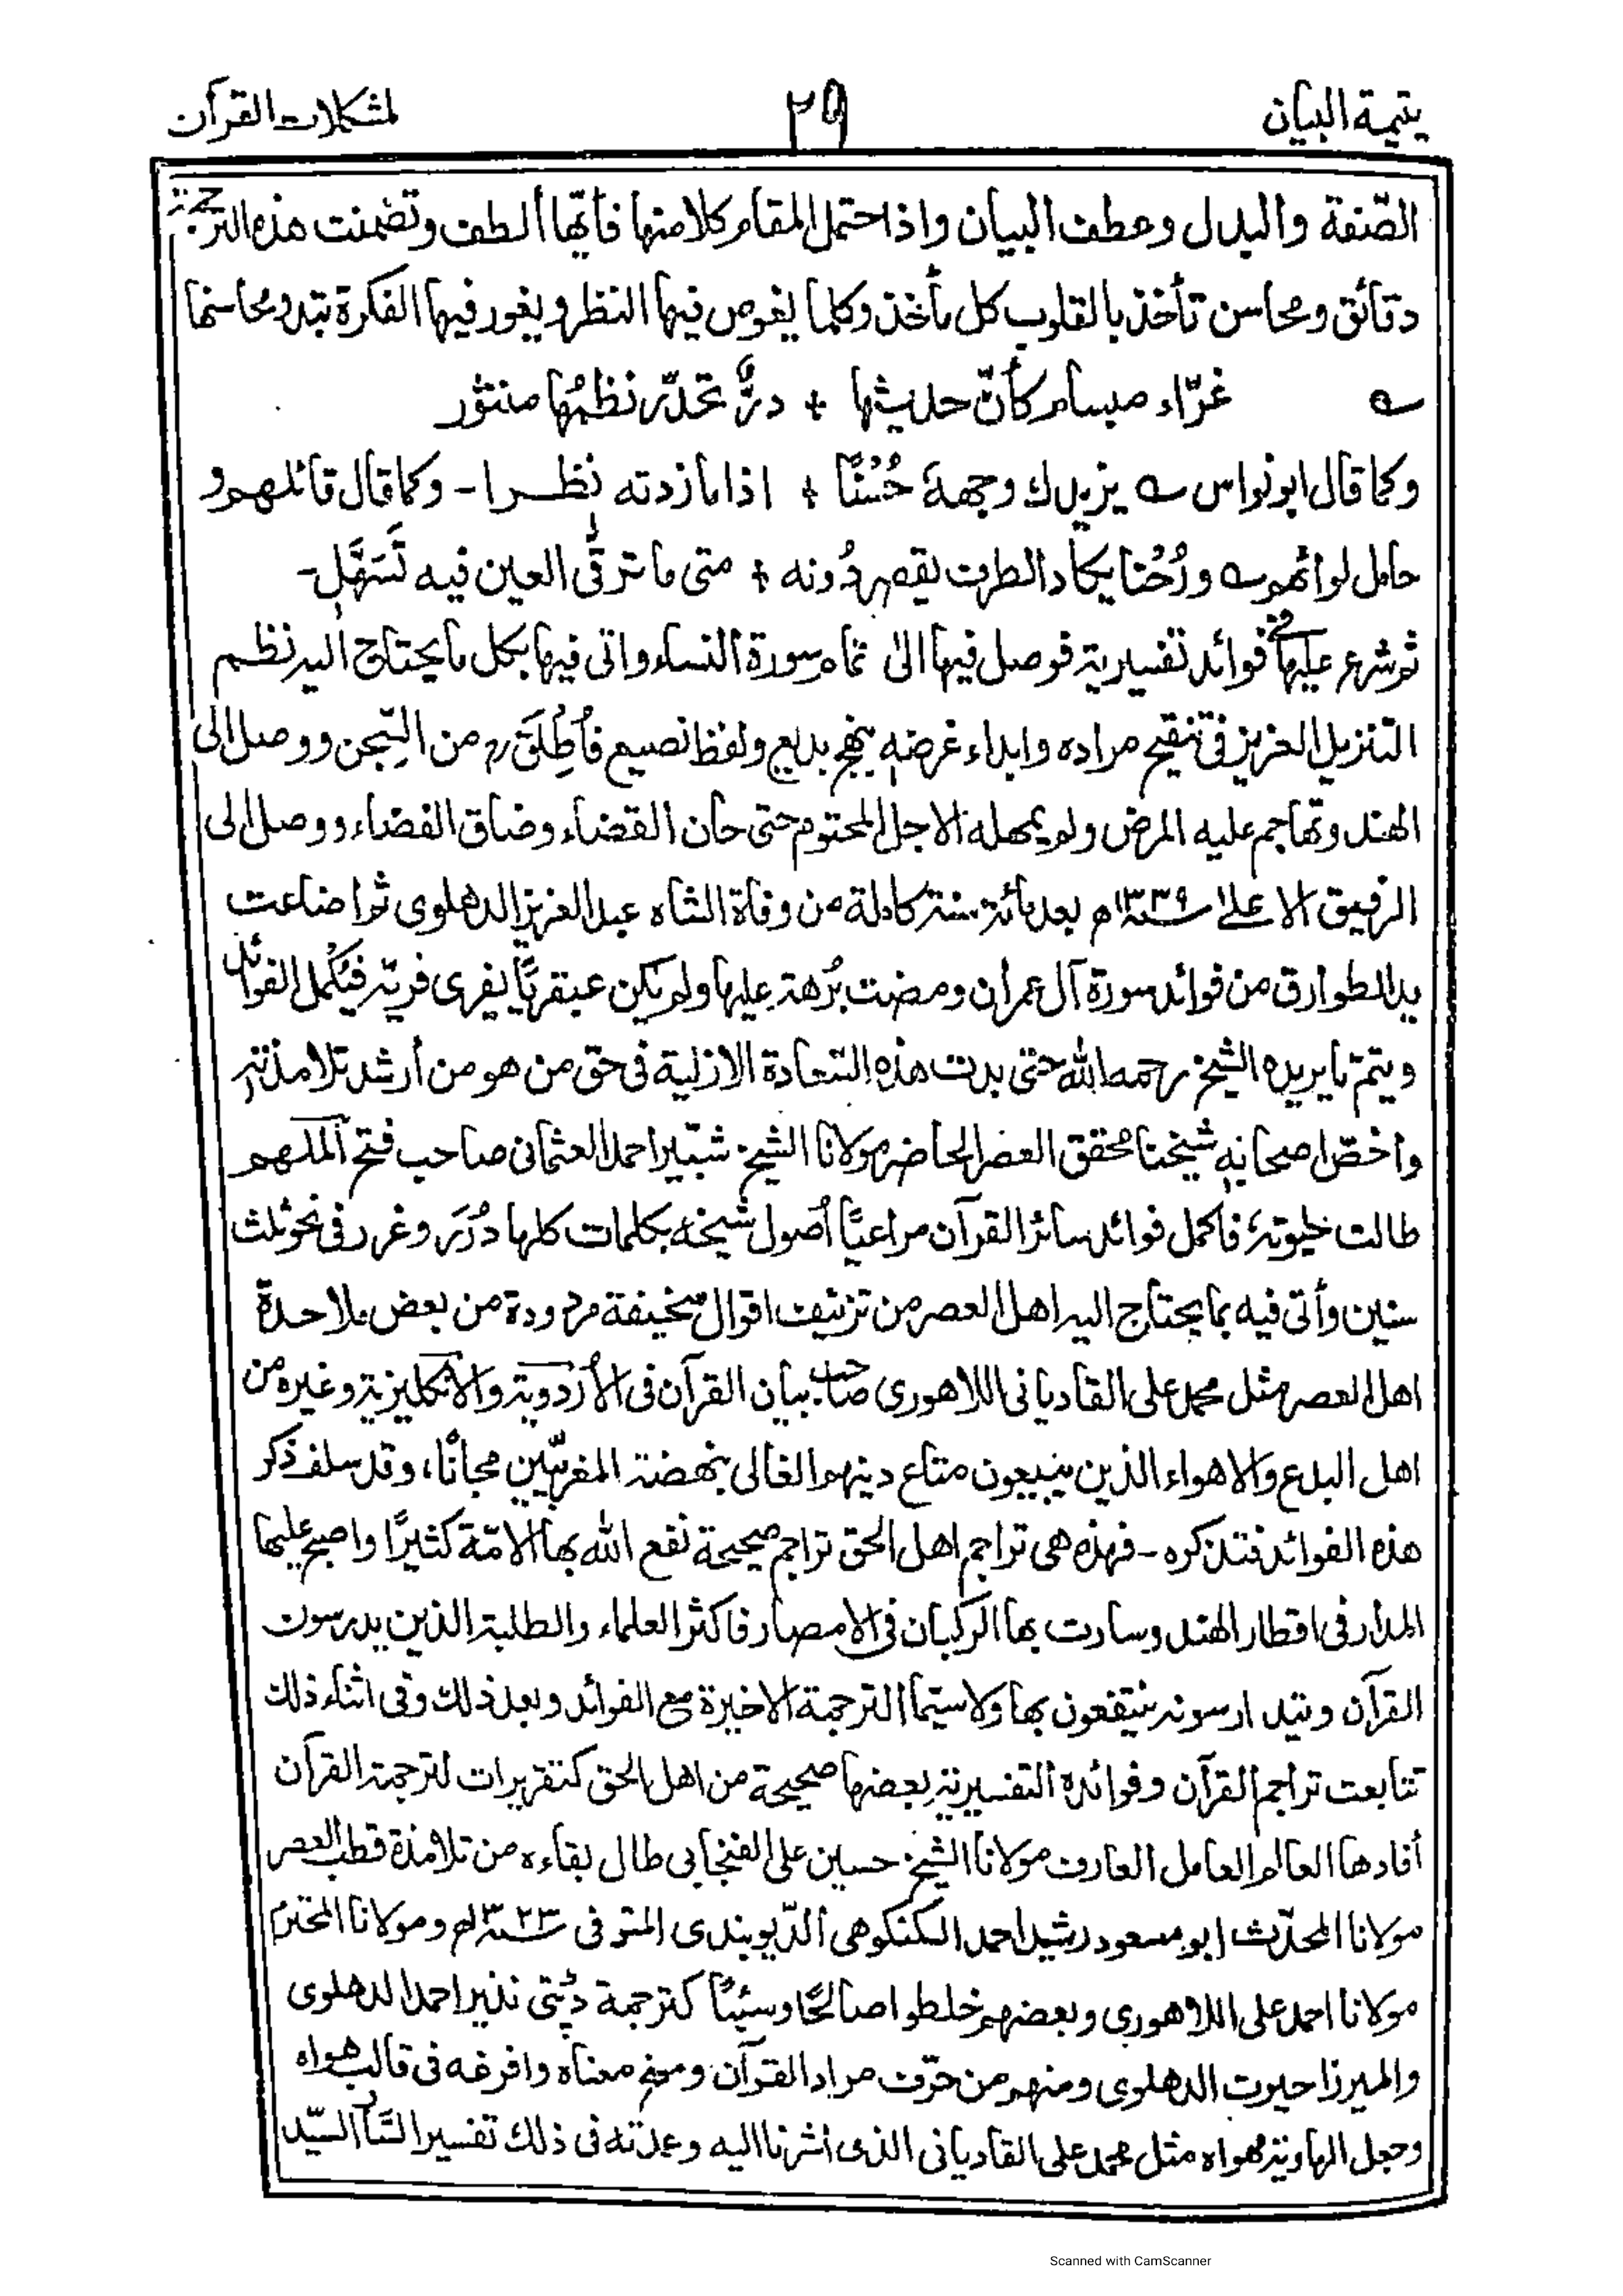 يتيمة البيان
٢٩
لمشكلات القرآن
الصّفة والبدل وعطف البيان واذا احتمل المقام كلا منها فأتّها ألطف وتضمنت هذه الترجمة
دقائق ومحاسن تأخذ بالقلوب كل مأخذ وكلما يغوص فيها النظر و يغور فيها الفكرة تبدو محاسنها
غرّاء مبسام كأنّ حديثها + درٌّ تحدّر نظمُها منثور
وكما قال ابو نواس يزيدك وجهه حُسْنًا + اذا ما زدته نظرا - وكما قال قائلهم و
حامل لوائهم ورُحْنا يكاد الطرف يقصر دُونه + متى ما ترقَّى العين فيه تَسَهَّلِ -
ثم شرع عليها فوائد تفسيرية فوصل فيها الى تمام سورة النساء واتى فيها بكل ما يحتاج اليه نظم
التنزيل العزيز فى تنقيح مراده وابداء غرضه بنهج بديع ولفظ نصيع فأُطْلِقَ من السِّجن ووصل الى
الهند وتهاجم عليه المرض ولم يمهله الاجل المحتوم حتى حان القضاء وضاق الفضاء ووصل الى
الرفيق الاعلى ١٣٣٩ﻫ بعد مائة سنة كاملة من وفاة الشاه عبد العزيز الدهلوى ثم اضاعت
يد الطوارق من فوائد سورة آل عمران ومضت بُرْهة عليها ولم يكن عبقريًّا يفرى فريّه فيُكمل الفوائد
ويتمّ ما يريده الشيخ رحمه الله حتى بدت هذه السّعادة الازلية فى حق من هو من أرشد تلامذته
واخصّ اصحابه شيخنا محقق العصر الحاضر مولانا الشيخ شبّير احمد العثمانى صاحب فتح الملهم
طالت حيوته فاكمل فوائد سائر القرآن مراعيًا أصول شيخه بكلمات كلها دُرَر وغرر فى نحو ثلث
سنين وأتى فيه بما يحتاج اليه اهل العصر من تزئيف اقوال سخيفة مردودة من بعض ملاحدة
اهل العصر مثل محمد على القاديانى اللاهورى صاحب بيان القرآن فى الأُردوية والانكليزية وغيره من
اهل البدع والاهواء الذين يبيعون متاع دينهم الغالى بنهضة المغربيّين مجانًا، وقد سلف ذكر
هذه الفوائد فتذكره - فهذه هى تراجم اهل الحق تراجم صحيحة نفع الله بها الامّة كثيرًا واصبح عليها
المدار فى اقطار الهند وسارت بها الركبان فى الامصار فاكثر العلماء والطلبة الذين يدرسون
القرآن ويتدارسونه ينتفعون بها ولا سيّما الترجمة الاخيرة مع الفوائد وبعد ذلك وفى اثناء ذلك
تتابعت تراجم القرآن وفوائده التفسيرية بعضها صحيحة من اهل الحق كتقريرات لترجمة القرآن
أفادها العالم العامل العارف مولانا الشيخ حسين على الفنجابى طال بقاءه من تلامذة قطب العصر
مولانا المحدّث ابو مسعود رشيد احمد الكنكوهى الدّيوبندى المتوفى ١٣٢٣ﻫ ومولانا المحترم
مولانا احمد على اللاهورى وبعضهم خلطوا صالحًا وسيّئًا كترجمة دُپتى نذير احمد الدهلوى
والميرزا حيرت الدهلوى ومنهم من حرّف مراد القرآن ومسخ معناه وافرغه فى قالب هواه
وجعل الهاوية مهواه مثل محمد على القاديانى الذى اشرنا اليه وعمدته فى ذلك تفسير السيّد
Scanned with CamScanner